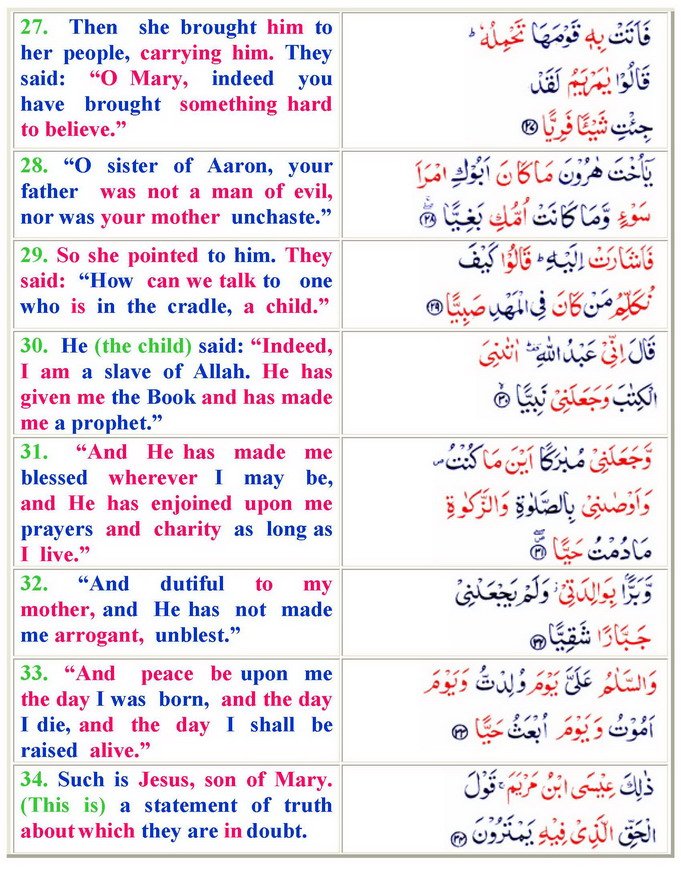 27. Then she brought him to
her people, carrying him. They
said: “O Mary, indeed you
have brought something hard
to believe.”
فَاَتَتْ بِهٖ قَوْمَهَا تَحْمِلُهٗ ؕ
قَالُوْا يٰمَرْيَمُ لَقَدْ
جِئْتِ شَيْـًٔا فَرِيًّا ﴿۲۷﴾
28. “O sister of Aaron, your
father was not a man of evil,
nor was your mother unchaste.”
يٰۤاُخْتَ هٰرُوْنَ مَا كَانَ اَبُوْكِ امْرَاَ
سَوْءٍ وَّمَا كَانَتْ اُمُّكِ بَغِيًّا ﴿۲۸﴾
29. So she pointed to him. They
said: “How can we talk to one
who is in the cradle, a child.”
فَاَشَارَتْ اِلَيْهِ ؕ قَالُوْا كَيْفَ
نُكَلِّمُ مَنْ كَانَ فِي الْمَهْدِ صَبِيًّا ﴿۲۹﴾
30. He (the child) said: “Indeed,
I am a slave of Allah. He has
given me the Book and has made
me a prophet.”
قَالَ اِنِّيْ عَبْدُ اللّٰهِ ؕ اٰتٰىنِيَ
الْكِتٰبَ وَجَعَلَنِيْ نَبِيًّا ﴿۳۰﴾
31. “And He has made me
blessed wherever I may be,
and He has enjoined upon me
prayers and charity as long as
I live.”
وَّجَعَلَنِيْ مُبٰرَكًا اَيْنَ مَا كُنْتُ
وَاَوْصٰنِيْ بِالصَّلٰوةِ وَالزَّكٰوةِ
مَا دُمْتُ حَيًّا ﴿۳۱﴾
32. “And dutiful to my
mother, and He has not made
me arrogant, unblest.”
وَّبَرًّۢا بِوَالِدَتِيْ ؗ وَلَمْ يَجْعَلْنِيْ
جَبَّارًا شَقِيًّا ﴿۳۲﴾
33. “And peace be upon me
the day I was born, and the day
I die, and the day I shall be
raised alive.”
وَالسَّلٰمُ عَلَيَّ يَوْمَ وُلِدْتُّ وَيَوْمَ
اَمُوْتُ وَيَوْمَ اُبْعَثُ حَيًّا ﴿۳۳﴾
34. Such is Jesus, son of Mary.
(This is) a statement of truth
about which they are in doubt.
ذٰلِكَ عِيْسَى ابْنُ مَرْيَمَ ۚ قَوْلَ
الْحَقِّ الَّذِيْ فِيْهِ يَمْتَرُوْنَ ﴿۳۴﴾